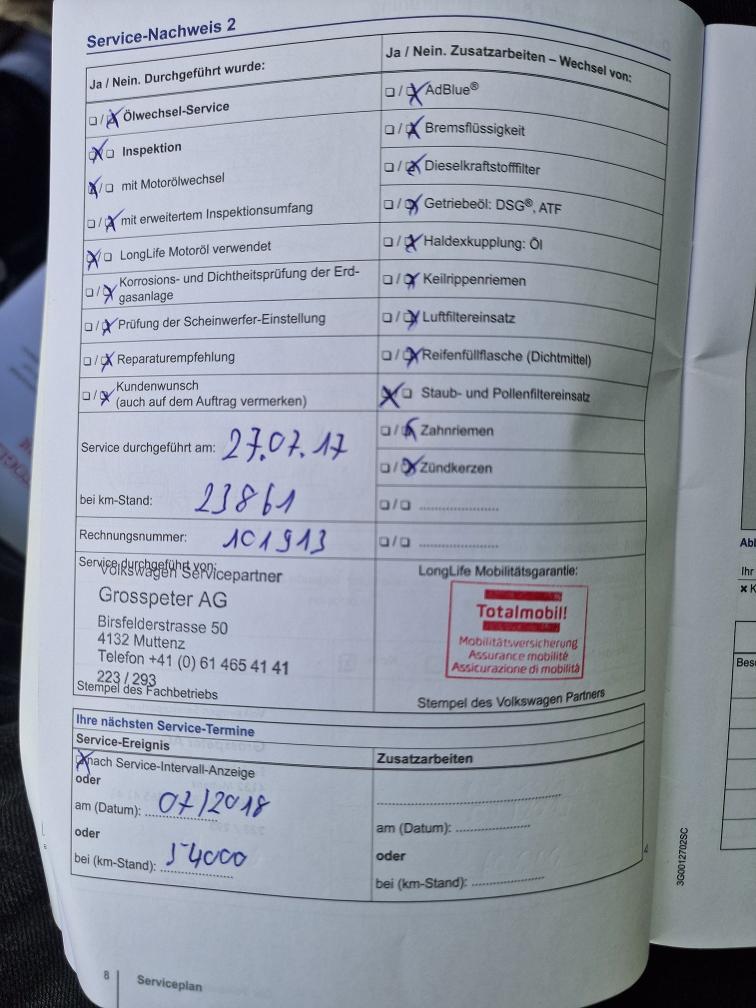 Service-Nachweis 2
Ja / Nein. Durchgeführt wurde:
☐/☒ Ölwechsel-Service
☒/☐ Inspektion
☒/☐ mit Motorölwechsel
☐/☒ mit erweitertem Inspektionsumfang
☒/☐ LongLife Motoröl verwendet
☐/☒ Korrosions- und Dichtheitsprüfung der Erd-
gasanlage
☐/☒ Prüfung der Scheinwerfer-Einstellung
☐/☒ Reparaturempfehlung
☐/☒ Kundenwunsch
(auch auf dem Auftrag vermerken)
Service durchgeführt am: 27.07.17
bei km-Stand: 23861
Rechnungsnummer: 101913
Service durchgeführt von:
Volkswagen Servicepartner
Grosspeter AG
Birsfelderstrasse 50
4132 Muttenz
Telefon +41 (0) 61 465 41 41
223 / 293
Stempel des Fachbetriebs
Ja / Nein. Zusatzarbeiten – Wechsel von:
☐/☒ AdBlue®
☐/☒ Bremsflüssigkeit
☐/☒ Dieselkraftstofffilter
☐/☒ Getriebeöl: DSG®, ATF
☐/☒ Haldexkupplung: Öl
☐/☒ Keilrippenriemen
☐/☒ Luftfiltereinsatz
☐/☒ Reifenfüllflasche (Dichtmittel)
☒/☐ Staub- und Pollenfiltereinsatz
☐/☒ Zahnriemen
☐/☒ Zündkerzen
☐/☐ ....................
☐/☐ ....................
LongLife Mobilitätsgarantie:
Totalmobil!
Mobilitätsversicherung
Assurance mobilité
Assicurazione di mobilità
Stempel des Volkswagen Partners
Ihre nächsten Service-Termine
Service-Ereignis
☒ nach Service-Intervall-Anzeige
oder
am (Datum): 07/2018
oder
bei (km-Stand): 54000
Zusatzarbeiten
am (Datum): ....................
oder
bei (km-Stand): ....................
8 Serviceplan
3G0012702SC
Ihr